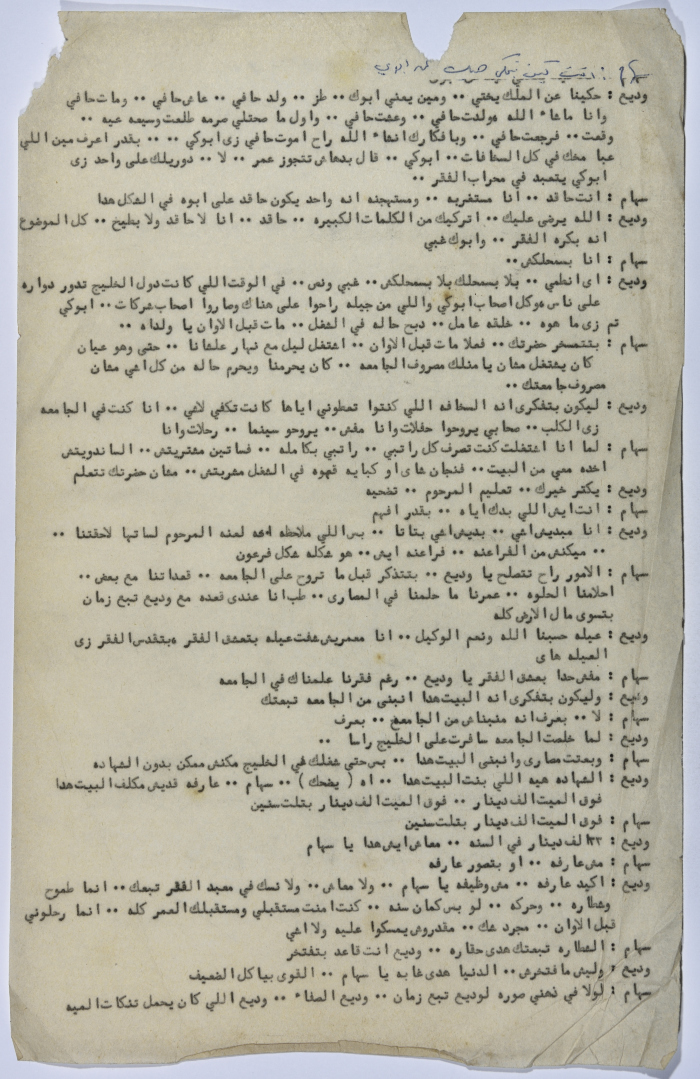 سهام : انت كيف بتحكي هيك عن ابوي
وديع : حكينا عن الملك يختي ٠٠ ومين يعني ابوك ٠٠ طز ٠٠ ولد حافي ٠٠ عاش حافي ٠٠ ومات حافي
وانا ماشاء الله هولدت حافي ٠٠ وعشت حافي ٠٠ واول ما صحتلي صرمه طلعت وسيعه عيه ٠٠
وقعت ٠٠ فرجعت حافي ٠٠ وبافكارك انشاء الله راح اموت حافي زى ابوكي ٠٠ ٠٠ بقدر اعرف مين اللي
عبا مخك في كل السخافات ٠٠ ابوكي ٠٠ قال بدهاش تتجوز عمر ٠٠ لا ٠٠ دوريلك على واحد زى
ابوكي يتعبد في محراب الفقر ٠٠
سهام : انت حاقد ٠٠ انا مستغربه ٠٠ ومستهجنه انه واحد يكون حاقد على ابوه في الشكل هدا
وديع : الله يرضى عليك ٠٠ اتركيك من الكلمات الكبيره ٠٠ حاقد ٠٠ انا لا حاقد ولا بطيخ ٠٠ كل الموضوع
انه بكره الفقر ٠٠ وابوك غبي
سهام : انا بسمحلكش ٠٠
وديع : اى انطمي ٠٠ بلا بسمحلك بلا بسمحلكش ٠٠ غبي ونص ٠٠ في الوقت اللي كانت دول الخليج تدور دواره
على ناس ٠٠ وكل اصحاب ابوكي واللي من جيله راحوا على هناك وصاروا اصحاب شركات ٠٠ ابوكي
تم زى ما هوه ٠٠ خلقه عامل ٠٠ دبح حاله في الشغل ٠٠ مات قبل الاوان يا ولداه ٠٠
سهام : بتتمسخر حضرتك ٠٠ فعلا مات قبل الاوان ٠٠ اشتغل ليل مع نهار علشانا ٠٠ حتى وهو عيان
كان يشتغل مشان يامنلك مصروف الجامعه ٠٠ كان يحرمنا ويحرم حاله من كل اشي مشان
مصروف جامعتك ٠٠
وديع : ليكون بتفكرى انه السخافه اللي كنتوا تعطوني اياها كانت تكفي لاشي ٠٠ انا كنت في الجامعه
زى الكلب ٠٠ صحابي يروحوا حفلات وانا مفش ٠٠ يروحو سينما ٠٠ رحلات وانا
سهام : لما انا اشتغلت كنت تصرف كل راتبي ٠٠ راتبي بكامله ٠٠ فساتين مشتريتش ٠٠ الساندويتش
اخده معي من البيت ٠٠ فنجان شاى او كبايه قهوه في الشغل مشربتش ٠٠ مشان حضرتك تتعلم
وديع : يكتر خيرك ٠٠ تعليم المرحوم ٠٠ تضحيه
سهام : انت ايش اللي بدك اياه ٠٠ بقدر افهم
وديع : انا مبديش اشي ٠٠ بديش اشي بتاتا ٠٠ بس اللي ملاحظه انه لعنه المرحوم لساتها لاحقتنا ٠٠
٠٠ ميكنش من الفراعنه ٠٠ فراعنه ايش ٠٠ هو شكله شكل فرعون
سهام : الامور راح تتصلح يا وديع ٠٠ بتتذكر قبل ما تروح على الجامعه ٠٠ قعداتنا مع بعض ٠٠
احلامنا الحلوه ٠٠ عمرنا ما حلمنا في المصارى ٠٠ طب انا عندى قعده مع وديع تبع زمان
بتسوى مال الارض كله
وديع : عيله حسبنا الله ونعم الوكيل ٠٠ انا معمريش شفت عيله بتعشق الفقر وبتقدس الفقر زى
العيله هاى
سهام : مفش حدا بعشق الفقر يا وديع ٠٠ رغم فقرنا علمناك في الجامعه
وديع : وليكون بتفكرى انه البيت هدا انبنى من الجامعه تبعتك
سهام : لا ٠٠ بعرف انه منبناش من الجامعه ٠٠ بعرف
وديع : لما خلصت الجامعه سافرت على الخليج راسا ٠٠
سهام : وبعتت مصارى وانبنى البيت هدا ٠٠ بس حتى شغلك في الخليج مكنش ممكن بدون الشهاده
وديع : الشهاده هيه اللي بنت البيت هدا ٠٠ اه ( يضحك ) ٠٠ سهام ٠٠ عارفه قديش مكلف البيت هدا
فوق الميت الف دينار ٠٠ فوق الميت الف دينار بتلت سنين
سهام : فوق الميت الف دينار بتلت سنين
وديع : ٣٣ الف دينار في السنه ٠٠ معاش ايش هدا يا سهام
سهام : مش عارفه ٠٠ او بتصور عارفه
وديع : اكيد عارفه ٠٠ مش وظيفه يا سهام ٠٠ ولا معاش ٠٠ ولا نسك في معبد الفقر تبعك ٠٠ انما طموح
وشطاره ٠٠ وحركه ٠٠ لو بس كمان سنه ٠٠ كنت امنت مستقبلي ومستقبلك العمر كله ٠٠ انما رحلوني
قبل الاوان ٠٠ مجرد شك ٠٠ مقدروش يمسكوا عليه ولا اشي
سهام : الشطاره تبعتك هدى حقاره ٠٠ وديع انت قاعد بتفتخر
وديع : وليش ما فتخرش ٠٠ الدنيا هدى غابه يا سهام ٠٠ القوى بياكل الضعيف
سهام : لولا في ذهني صوره لوديع تبع زمان ٠٠ وديع الصفاء ٠٠ وديع اللي كان يحمل تنكات الميه